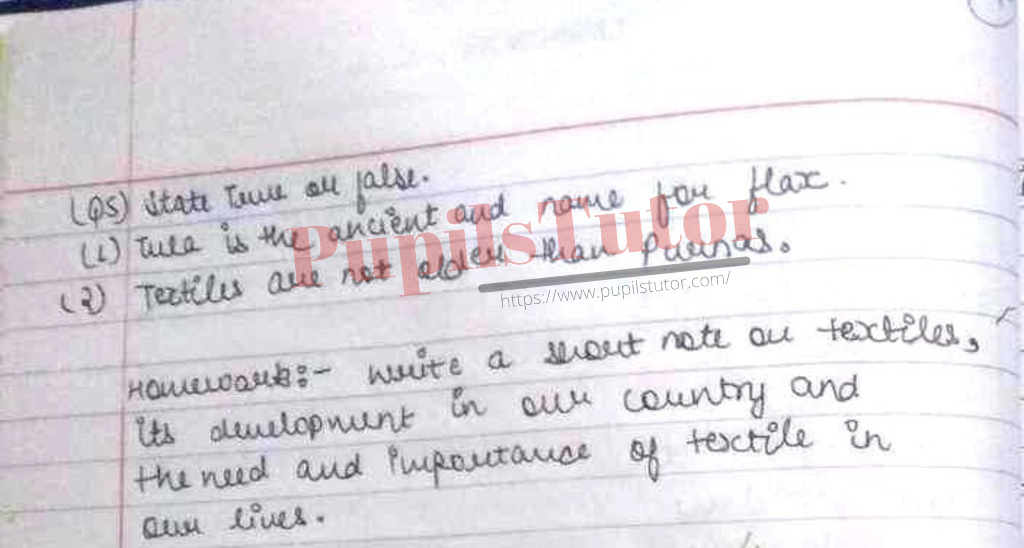 (Q5) State True or false.
(1) Tula is the ancient and name for flax.
(2) Textiles are not older than Purnas.
PupilsTutor
https://www.pupilstutor.com/
Homework:- Write a short note on textiles,
its development in our country and
the need and importance of textile in
our lives.